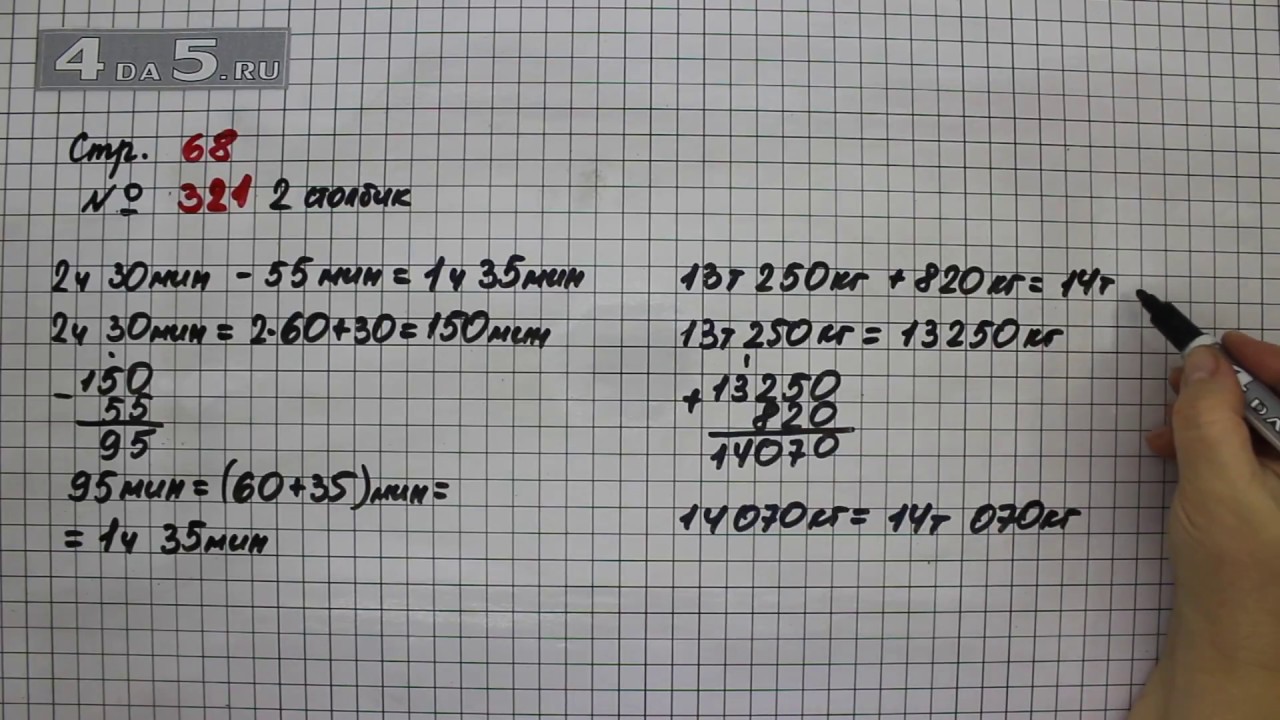 4DA5.RU
Стр. 68
№ 321 2 столбик
2ч 30мин - 55мин = 1ч 35мин
2ч 30мин = 2·60+30=150мин
-150
55
95
95мин=(60+35)мин=
= 1ч 35мин
13т 250кг + 820кг= 14т
13т 250кг = 13250кг
1
+13250
820
14070
14070кг= 14т 070кг